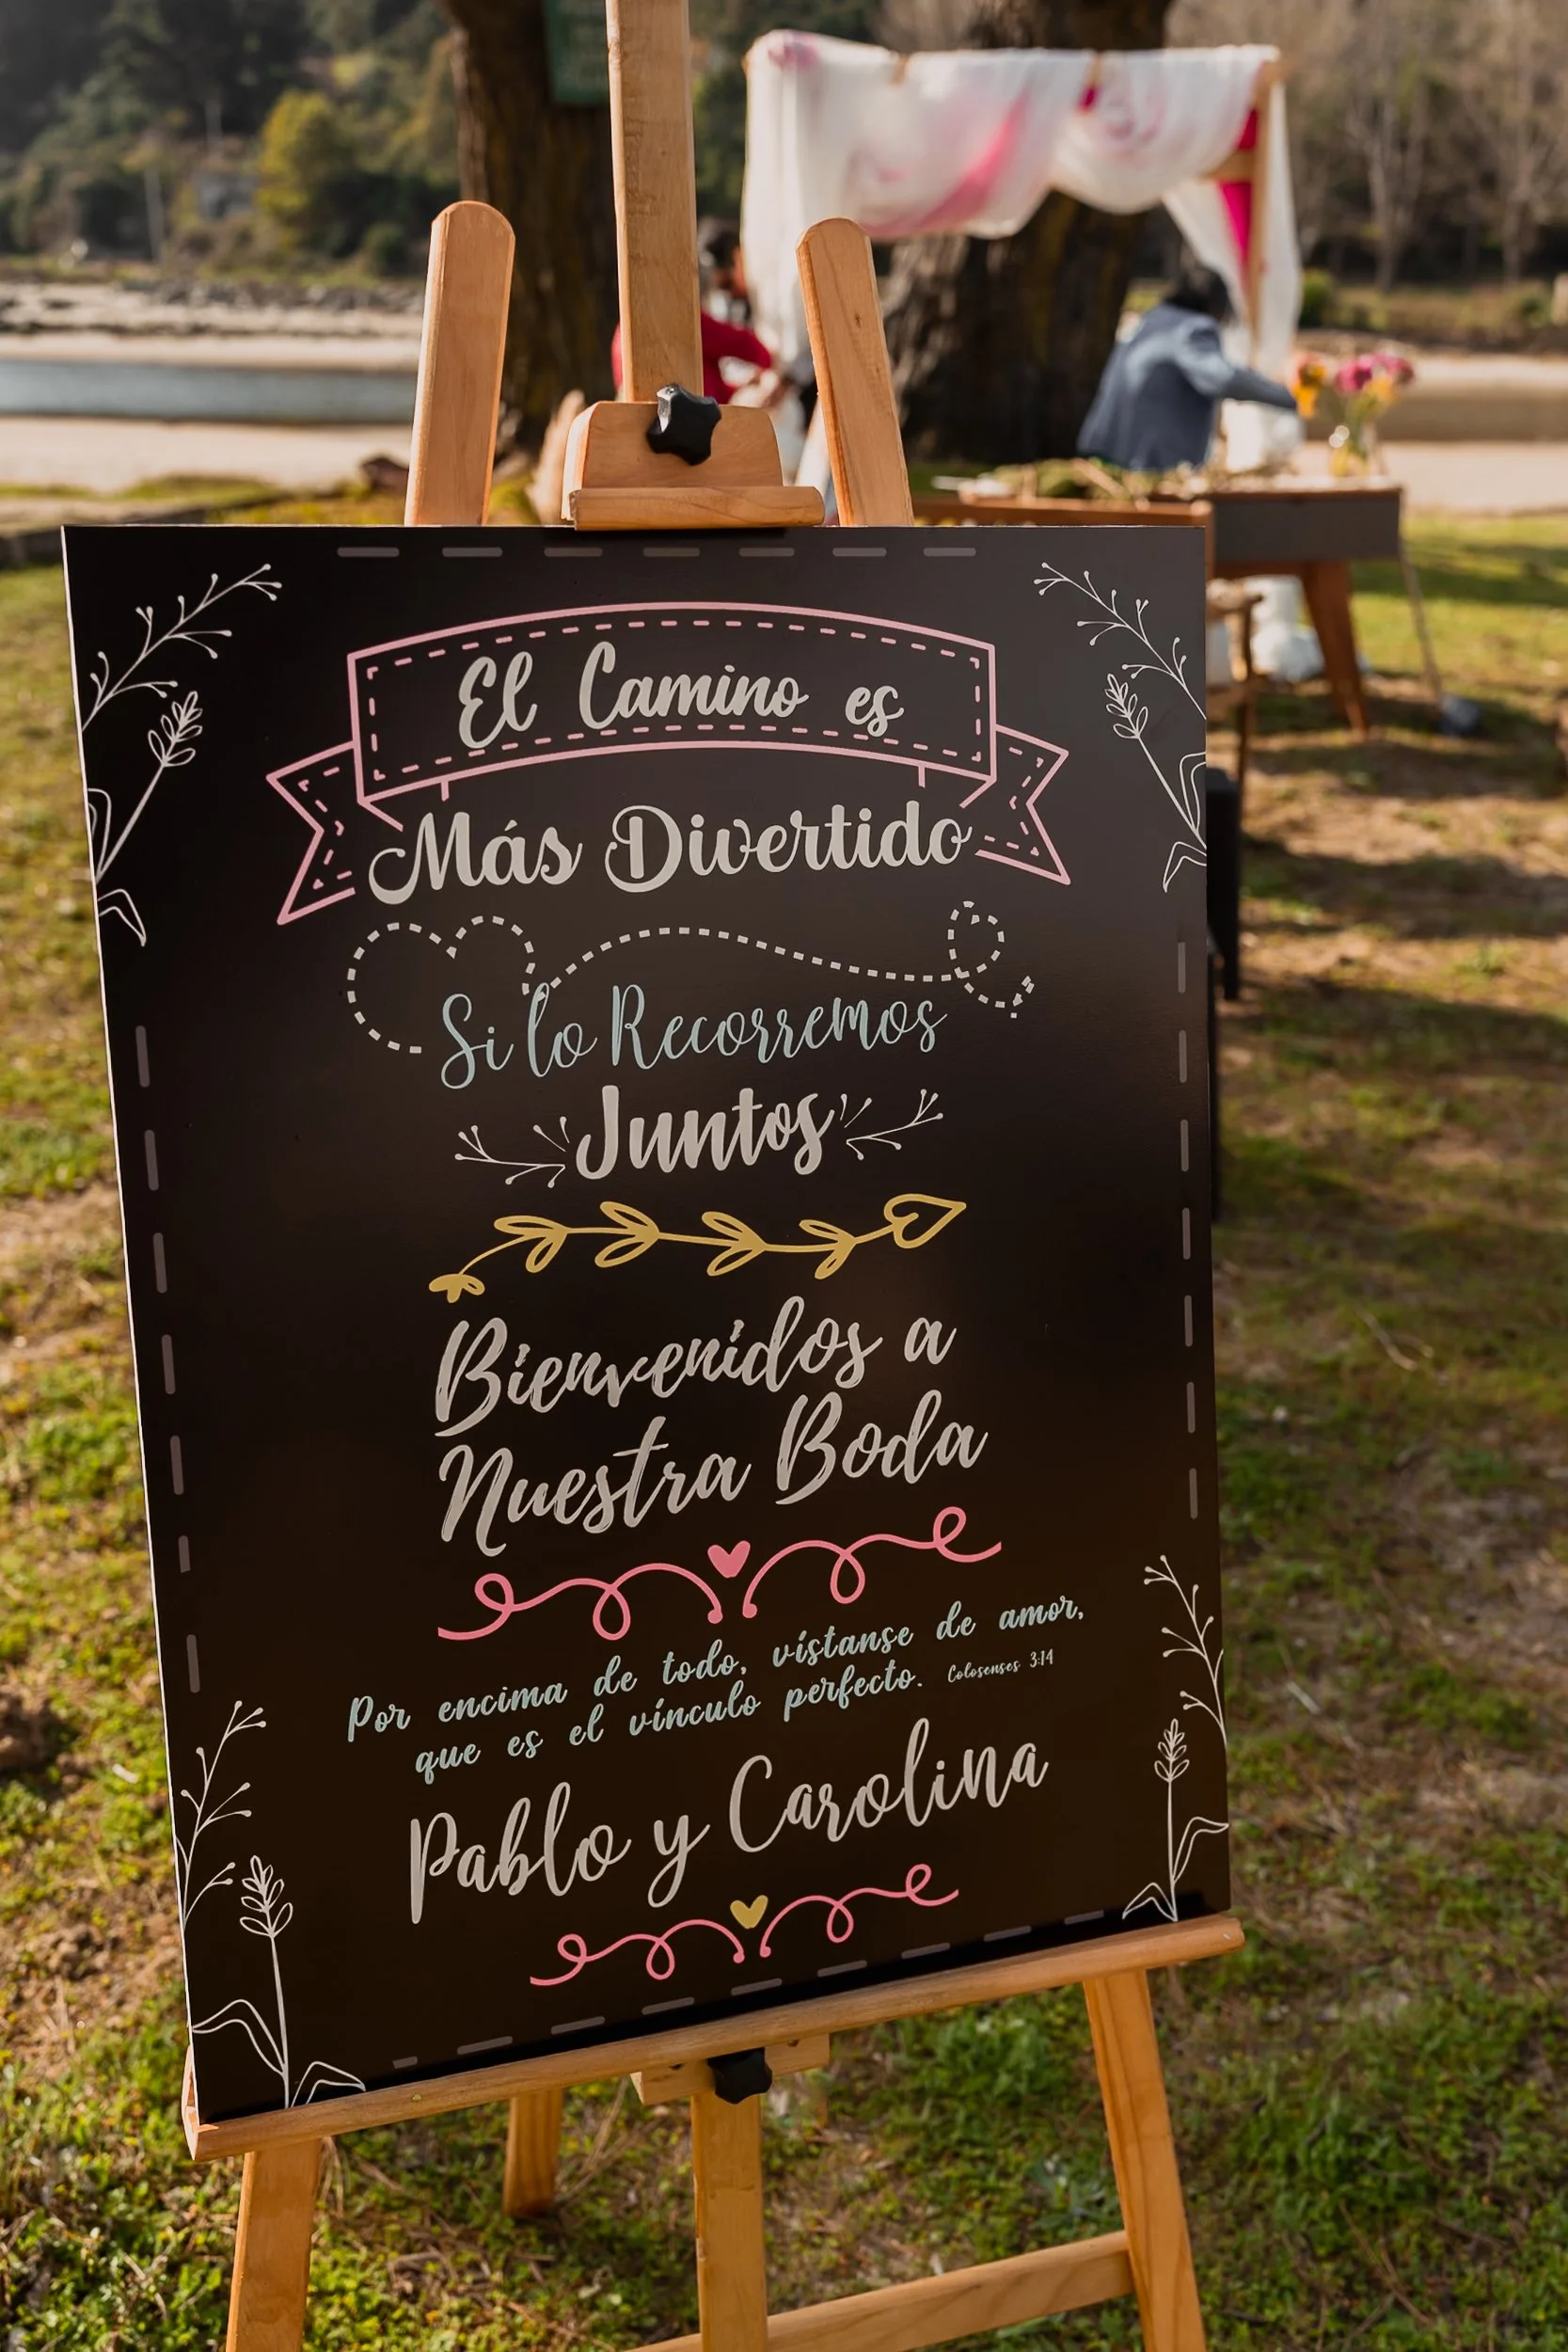 El Camino es
Más Divertido
Si lo Recorremos
Juntos
Bienvenidos a
Nuestra Boda
Por encima de todo, vístanse de amor,
que es el vínculo perfecto. Colosenses 3:14
Pablo y Carolina